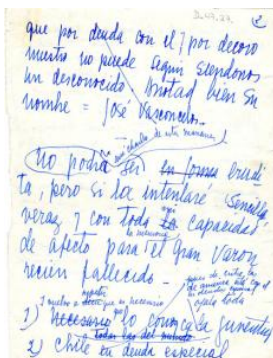 que por deuda con el y por decoro
nuestro no puede seguir siendonos
un desconocido Anotad bien su
nombre = José Vasconcelos.
mi charla de esta manera
No podrá ser en forma erudi
ta, pero si la intentaré sencilla
veraz y con toda mi capacidad
de afecto para el gran Varon
recien fallecido.
1) Necesario lo conozca la juventud
todas las del mundo
2) Chile en deuda especial